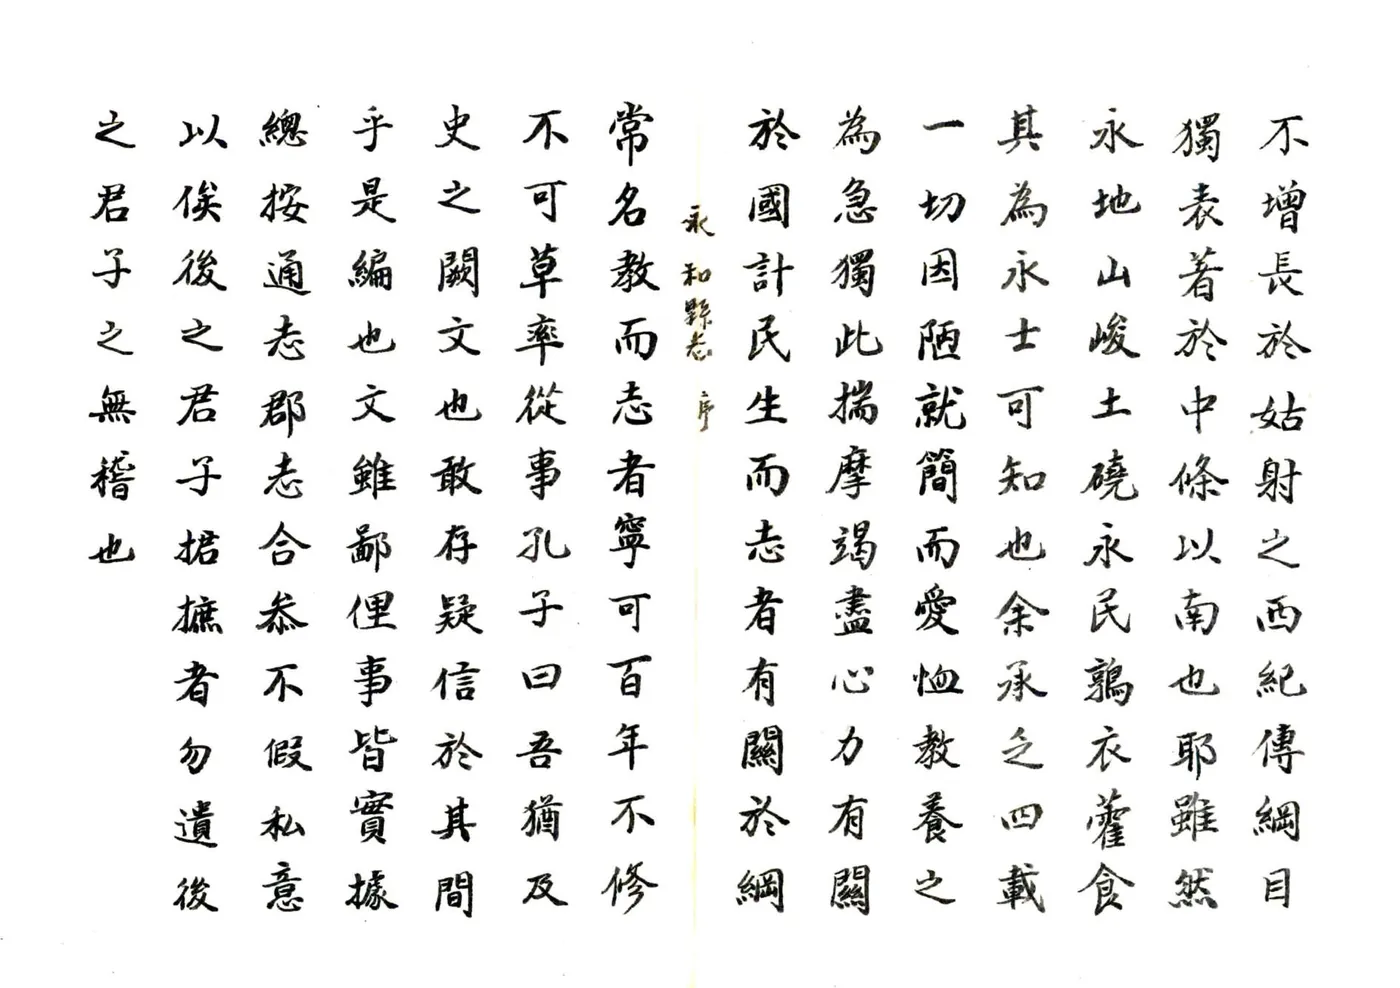 不增長於姑射之西紀傳綱目
獨表著於中條以南也耶雖然
永地山峻土磽永民鶉衣藿食
其為永士可知也余承乏四載
一切因陋就簡而愛恤教養之
為急獨此揣摩竭盡心力有關
於國計民生而志者有關於綱
永和縣志 序
常名教而志者寧可百年不修
不可草率從事孔子曰吾猶及
史之闕文也敢存疑信於其間
乎是編也文雖鄙俚事皆實據
總按通志郡志合叅不假私意
以俟後之君子据摭者勿遺後
之君子之無稽也